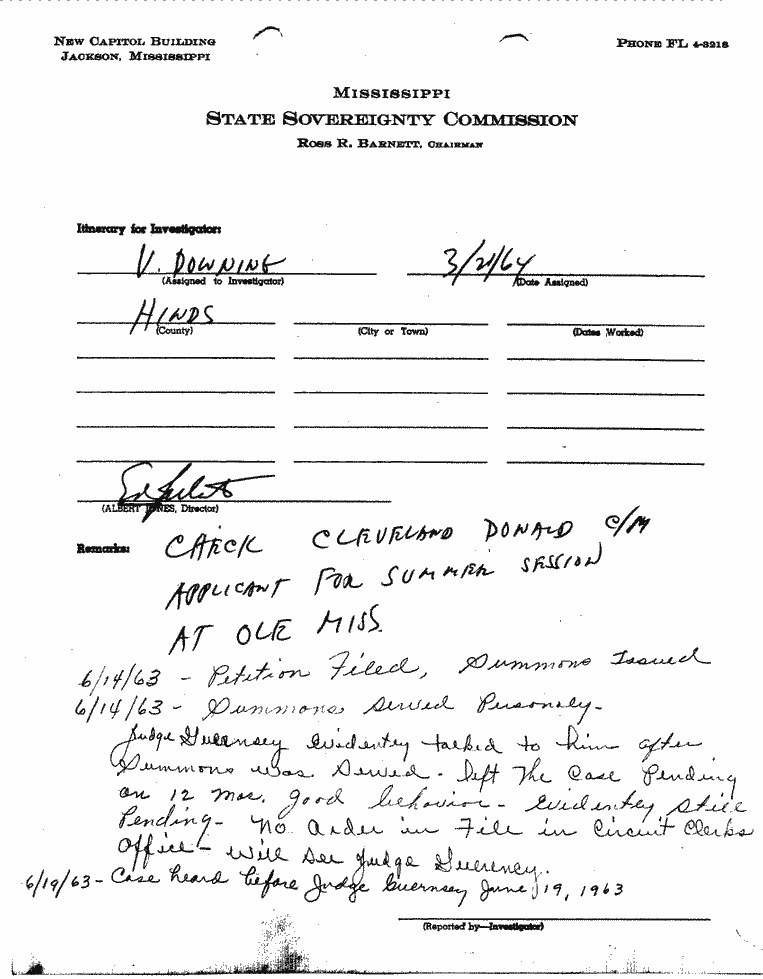 NEW CAPITOL BUILDING
JACKSON, MISSISSIPPI
PHONE FL 4-3218
MISSISSIPPI
STATE SOVEREIGNTY COMMISSION
ROSS R. BARNETT, CHAIRMAN
Itinerary for Investigator:
V. DOWNING 3/21/64
(Assigned to Investigator) (Date Assigned)
HINDS
(County) (City or Town) (Dates Worked)
(ALBERT JONES, Director)
Remarks: CHECK CLEVELAND DONALD C/M
APPLICANT FOR SUMMER SESSION
AT OLE MISS.
6/14/63 - Petition Filed, Summons Issued
6/14/63 - Summons Served Personaly -
Judge Guernsey Evidentey talked to him after
Summons was Served - left The Case Pending
on 12 mos. good behavior - Evidentey Still
Pending - No Order in File in Circuit Clerks
Office - will see Judge Guerney.
6/19/63 - Case heard before Judge Guernsey June 19, 1963
(Reported by—Investigator)